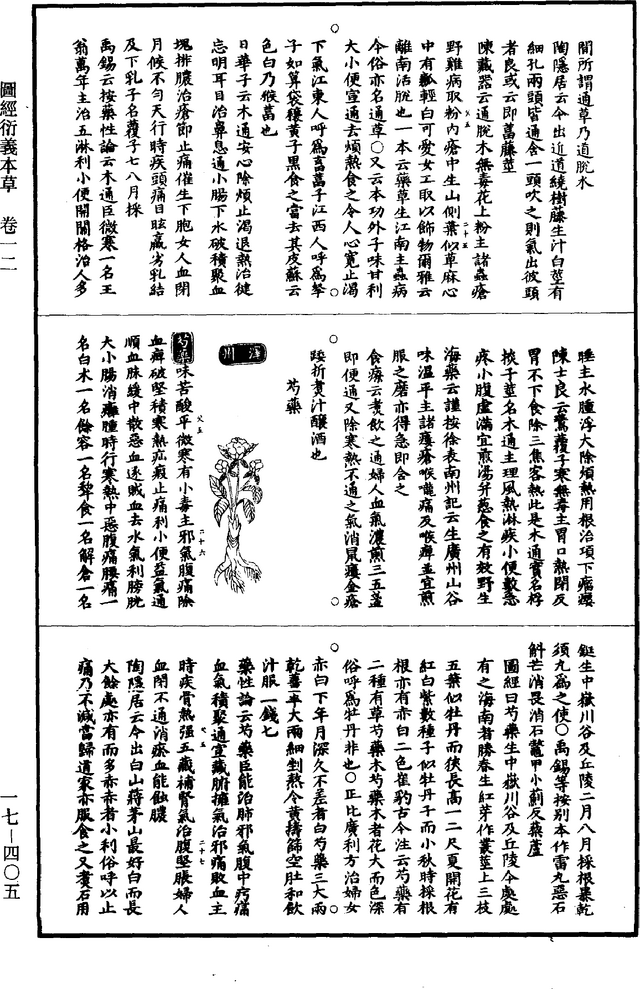 圖經衍義本草　卷一二
一七－四〇五
間所謂通草乃通脫木
陶隱居云今出近道繞樹藤生汁白莖有
細孔兩頭皆通含一頭吹之則氣出彼頭
者良或云即葍藤莖
陳藏器云通脫木無毒花上粉主諸蟲瘡
野雞病取粉內瘡中生山側葉似草麻心
中有瓤輕白可愛女工取以飾物爾雅云
離南活脫也一本云藥草生江南主蟲病
今俗亦名通草〇又云本功外子味甘利
大小便宣通去煩熱食之令人心寬止渴
下氣江東人呼為畜葍子江西人呼為拏
子如算袋穰黃子黑食之當去其皮蘇云
色白乃猴葍也
日華子云木通安心除煩止渴退熱治健
忘明耳目治鼻息通小腸下水破積聚血
塊排膿治瘡癤止痛催生下胞女人血閉
月候不勻天行時疾頭痛目眩羸劣乳結
及下乳子名覆子七八月採
禹錫云按藥性論云木通臣微寒一名王
翁萬年主治五淋利小便開關格治人多
睡主水腫浮大除煩熱用根治項下瘤癭
陳士良云鷰覆子寒無毒主胃口熱閉反
胃不下食除三焦客熱此是木通實名桴
棪子莖名木通主理風熱淋疾小便數急
疼小腹虛滿宜煎湯并葱食之有效野生
海藥云謹按徐表南州記云生廣州山谷
味溫平主諸瘻瘡喉嚨痛及喉痹並宜煎
服之磨亦得急即含之
食療云煮飲之通婦人血氣濃煎三五盞
即便通又除寒熱不通之氣消鼠瘻金瘡
踒折煑汁釀酒也
芍藥
澤州
芍藥味苦酸平微寒有小毒主邪氣腹痛除
血痹破堅積寒熱疝瘕止痛利小便益氣通
順血脉緩中散惡血逐賊血去水氣利膀胱
大小腸消癰腫時行寒熱中惡腹痛腰痛一
名白木一名餘容一名犂食一名解倉一名
鋋生中嶽川谷及丘陵二月八月採根暴乾
須丸為之使〇禹錫等按別本作雷丸惡石
斛芒消畏消石鱉甲小薊反藜蘆
圖經曰芍藥生中嶽川谷及丘陵今處處
有之海南者勝春生紅芽作叢莖上三枝
五葉似牡丹而狹長高一二尺夏開花有
紅白紫數種子似牡丹子而小秋時採根
根亦有赤白二色崔豹古今注云芍藥有
二種有草芍藥木芍藥木者花大而色深
俗呼為牡丹非也〇正比廣利方治婦女
赤白下年月深久不差者白芍藥三大兩
乾薑半大兩細剉熬令黃擣篩空肚和飲
汁服一錢匕
藥性論云芍藥臣能治肺邪氣腹中㽲痛
血氣積聚通宣藏腑擁氣治邪痛敗血主
時疾骨熱强五藏補腎氣治腹堅脹婦人
血閉不通消瘀血能蝕膿
陶隱居云今出白山蔣茅山最好白而長
大餘處亦有而多赤赤者小利俗呼以止
痛乃不減當歸道家亦服食之又煑石用